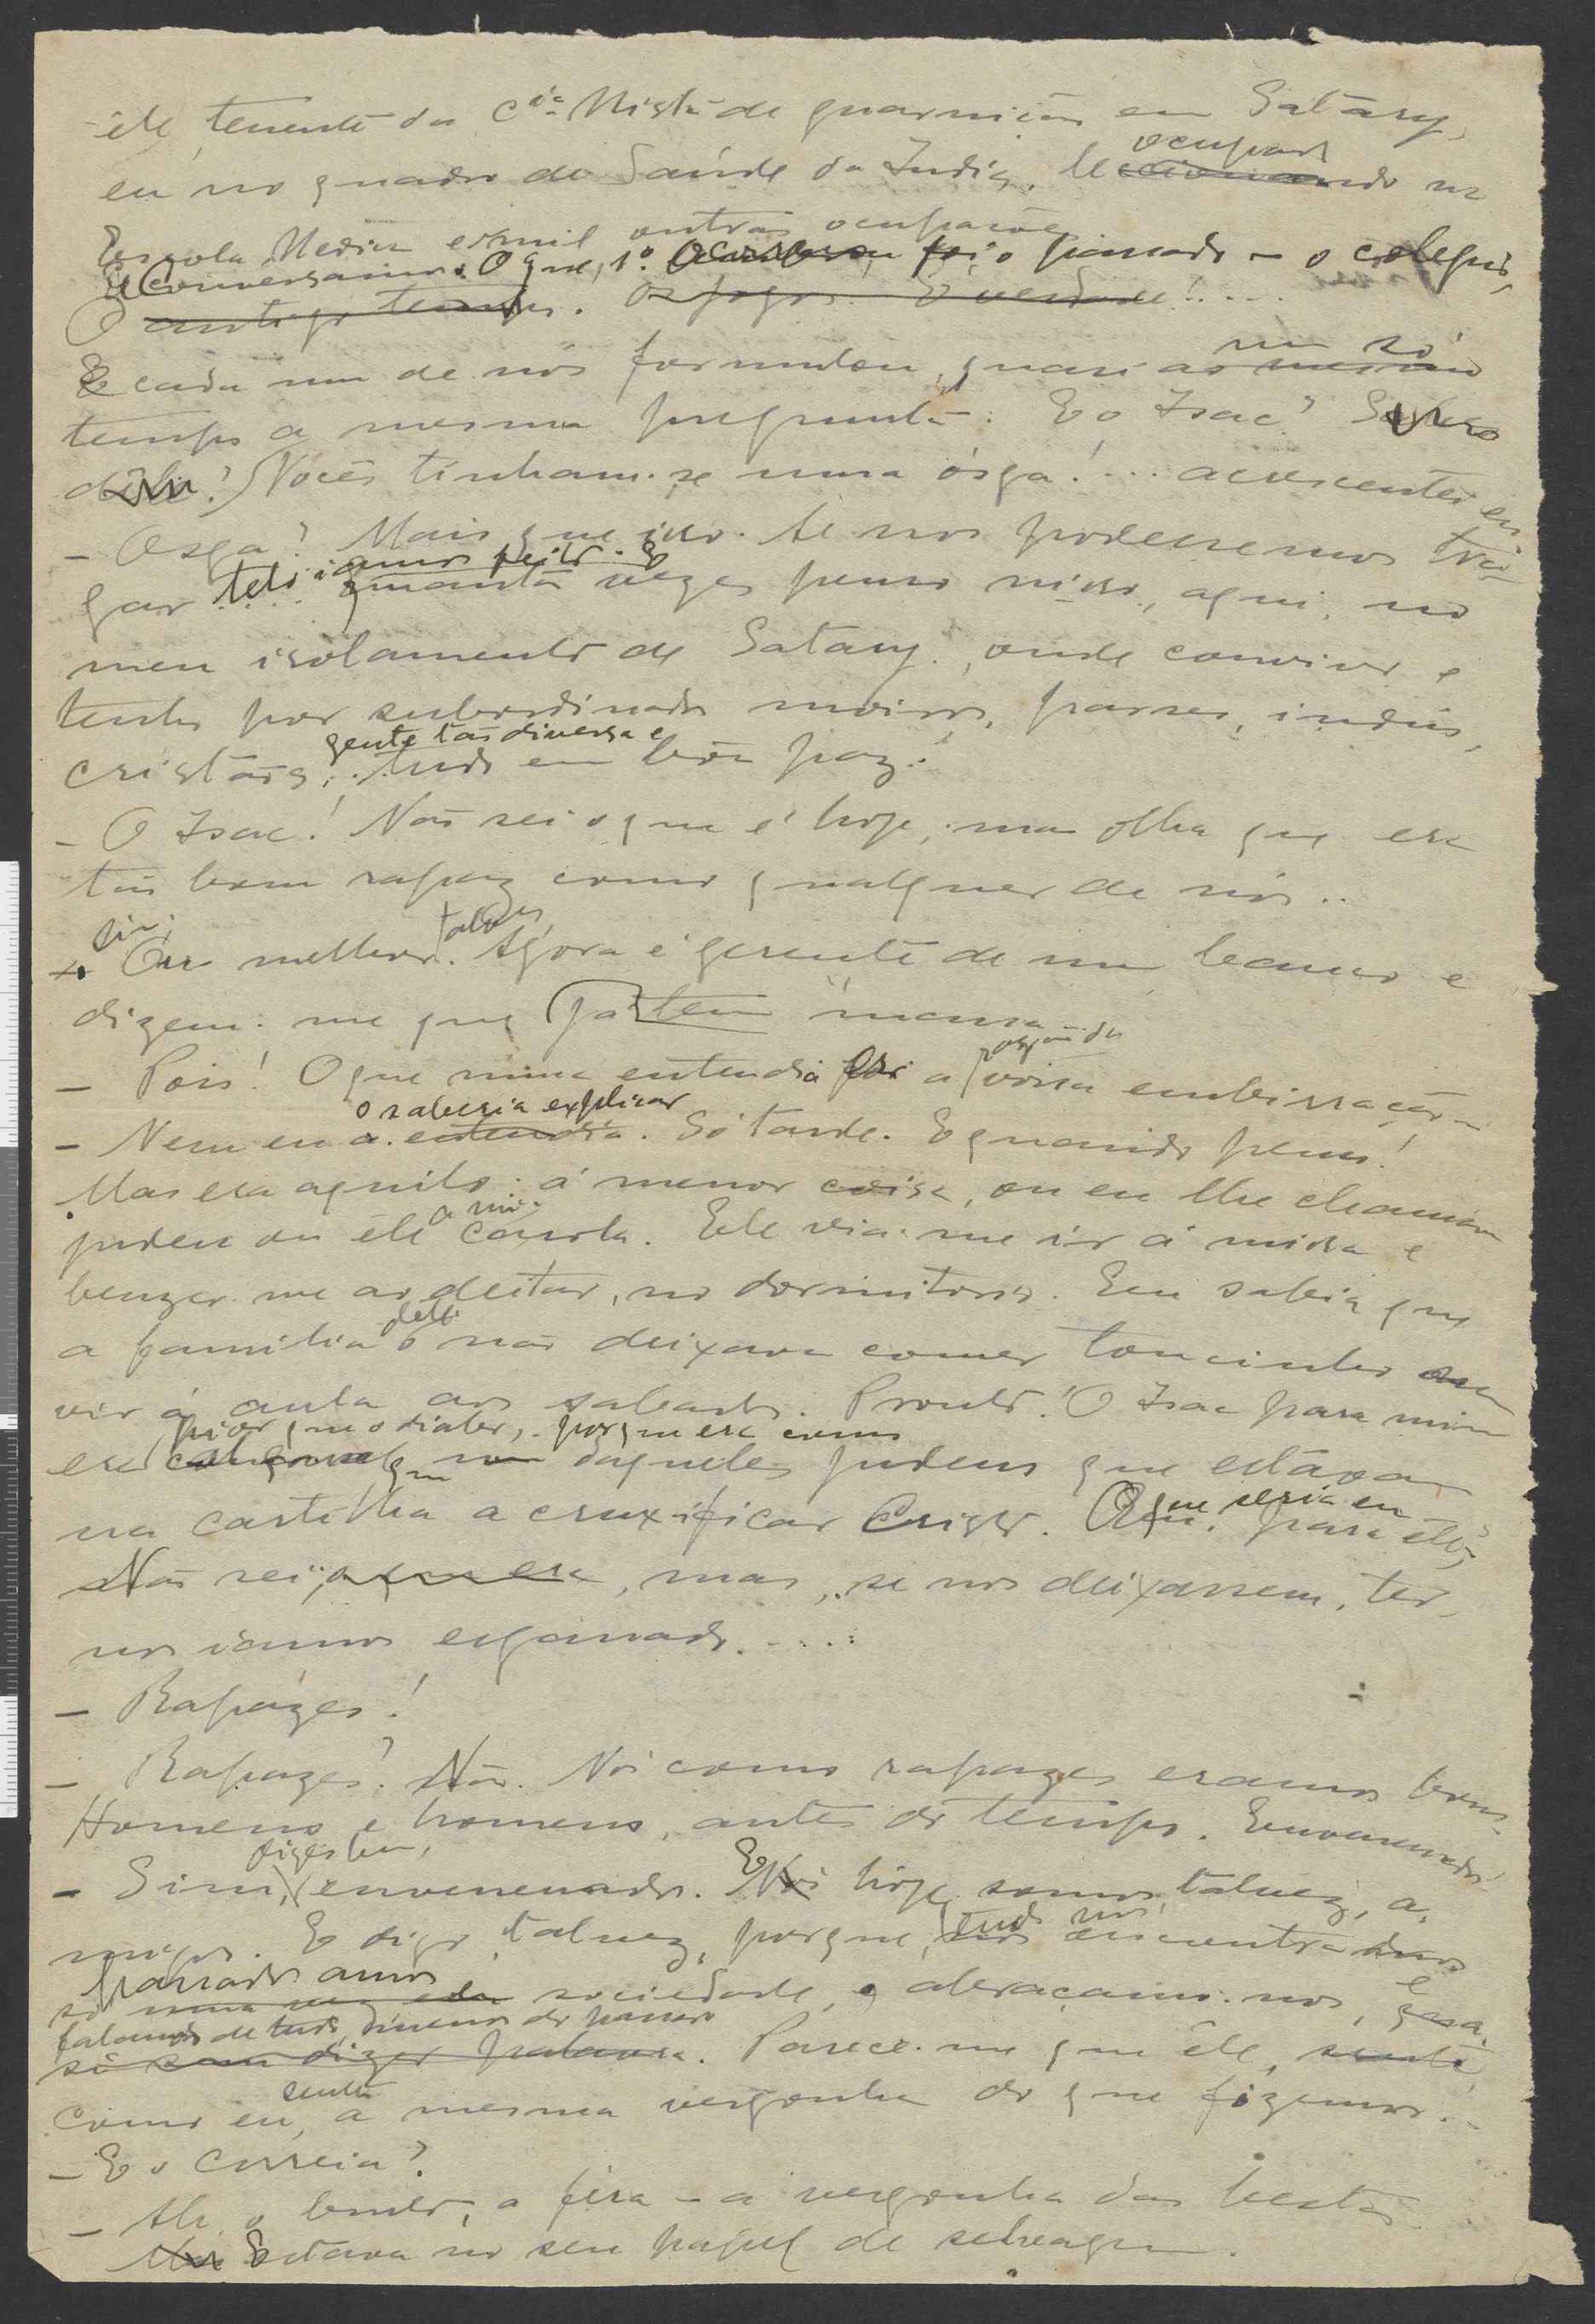 êle, tenente da Cia Mista de guarnição em Satary,
ocupado
eu no quadro de Saúde da India, leccionando na
Escola Medica e mil outras ocupações
E Conversamos. O que, 1º. foi o passado – o colegio,
O antigo tempo. Os jogos. E verdade!....
um só
E cada um de nós formulou, quasi ao mesmo
tempo a mesma pregunta: E o Isac? Soubeste
dele? Vocês tinham-se uma ósga!... acrescentei eu
– Osga? Mais que isso. Se nos podessemos tra-
tel-iamos feito. E
gar .... quantas vezes penso nisso, aqui, no
meu isolamento de Satary, onde convivo e
tenho por subordinados moiros, parses, indús,
gente tão diversa e
cristãos,... tudo em bôa paz.
– O Isac! Não sei o que é hoje, mas olha que era
tão bom rapaz como qualquer de nós..
sim; talvez,
– Ou melhor. Agora é gerente de um banco e
dizem-me que já tem
razão da
– Pois! O que nunca entendi foi a vossa embirração –
o saberia explicar
– Nem eu a entendia. Só tarde. E quando penso!
Mas era aquilo: á menor coisa, ou eu lhe chamava
a mim
judeu ou êle carola. Ele via-me ir á missa e
benzer-me ao deitar, no dormitorio. Eu sabia que
dele
a familia o não deixava comer toucinho nem
vir á aula aos sabados. Pronto! O Isac para mim
pior que o diabo, porque era como
era um daqueles judeus que estava
na cartilha a cruxificar Cristo. O que seria eu para êle?
Não sei o que era, mas, se nos deixassem, ter-
nos-iamos esganado.....
– Rapázes!
– Rapazes? Não. Nós como rapazes eramos bons.
Homens e homens, antes do tempo. Envenenados.
diges bem,
– Sim, envenenados. E Nós hoje somos, talvez, a-
tudo nos
migos. E digo talvez, porque, nos encontramos
passados anos
só uma vez na sociedade, e abraçamo-nos, e
falamos de tudo, menos do passado
só sem dizer palavra. Parece-me que êle, sente
sente
como eu, a mesma vergonha do que fizemos.
– E o Correia?
– Ah, o bruto, a fera – a vergonha das bestas
Mas Estava no seu papel de selvagem.